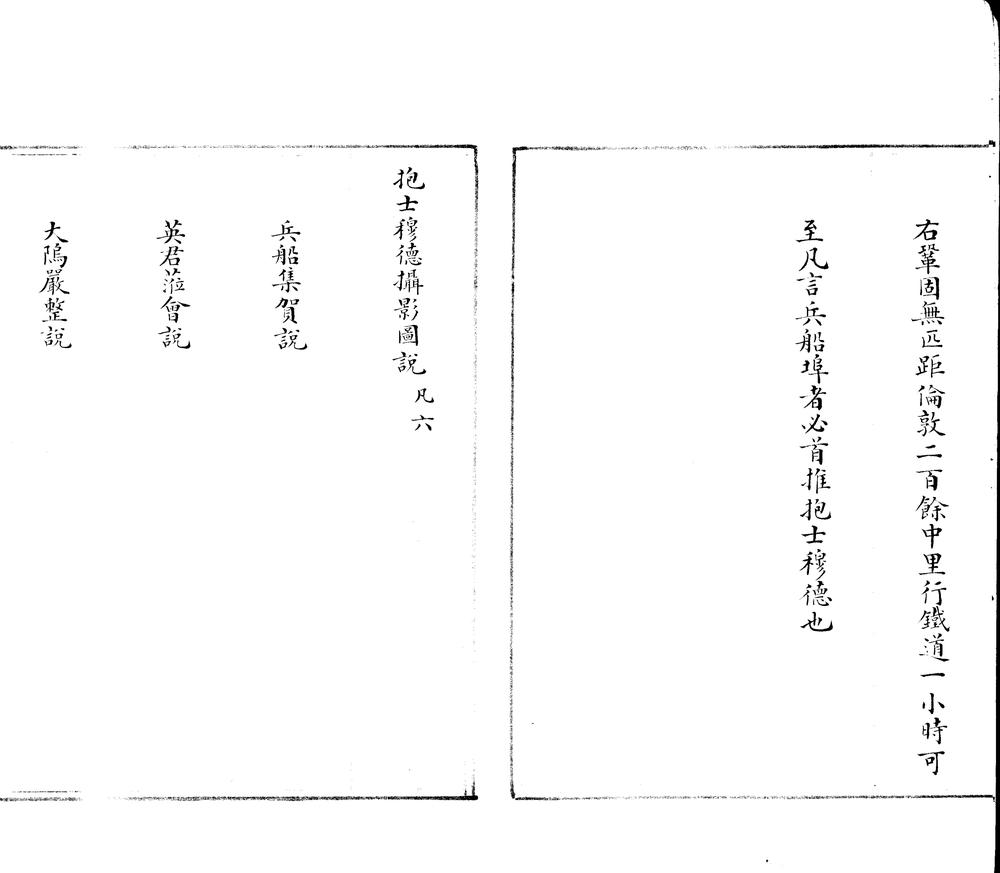 右鞏固無匹距倫敦二百餘中里行鐵道一小時可
至凡言兵船埠者必首推抱士穆德也
抱士穆德攝影圖說 凡六
兵船集賀說
英君蒞會說
大隖嚴整說